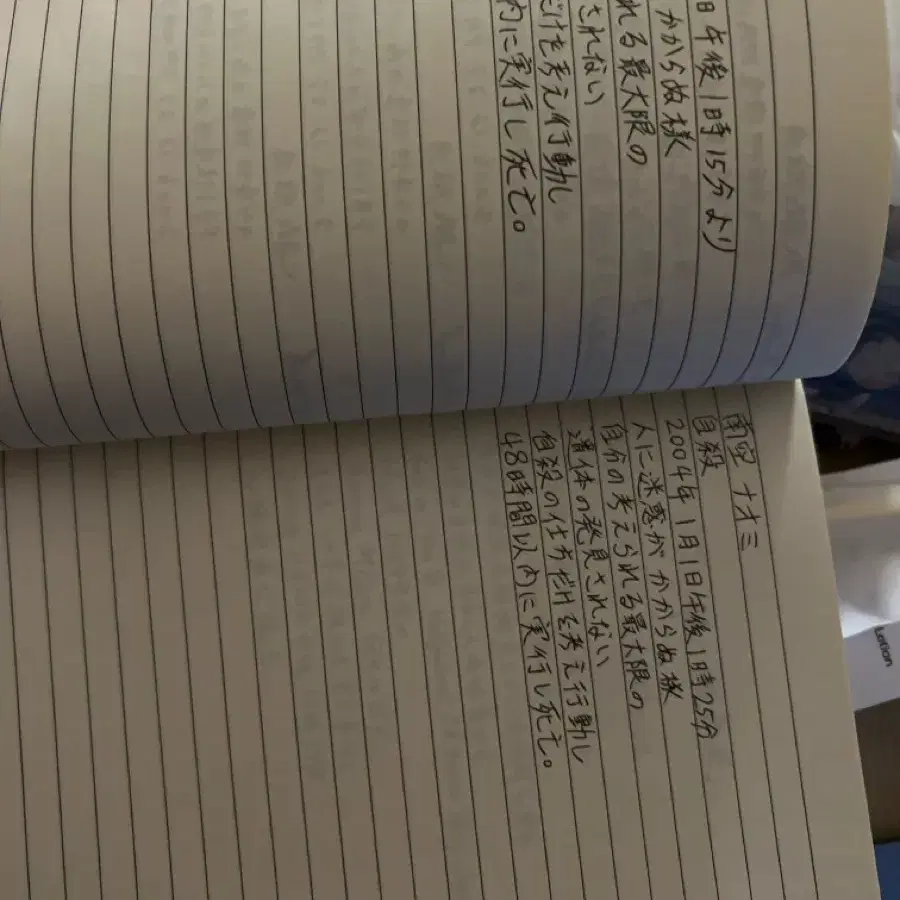 日午後1時15分より
かからぬ様
れる最大限の
されない
だけを考え行動し
内に実行し死亡。
南空 ナオミ
自殺
2004年1月1日午後1時25分
人に迷惑がかからぬ様
自分の考えられる最大限の
遺体の発見されない
自殺の仕方だけを考え行動し
48時間以内に実行し死亡。
Lotion